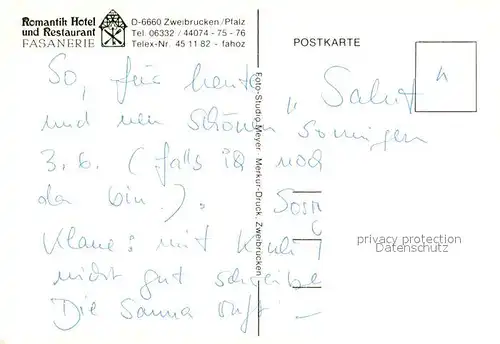 Romantik Hotel
und Restaurant
FASANERIE
D-6660 Zweibrücken/Pfalz
Tel. 06332 / 44074 - 75 - 76
Telex-Nr. 45 11 82 - fahoz
POSTKARTE
So, für heute „Salut“
und nen schönen sonnigen
3. 6. (falls ich noch
da bin!).
mit
nicht gut schreibe
Die Sauna ruft! –
Foto-Studio Meyer · Merkur-Druck, Zweibrücken
privacy protection
Datenschutz